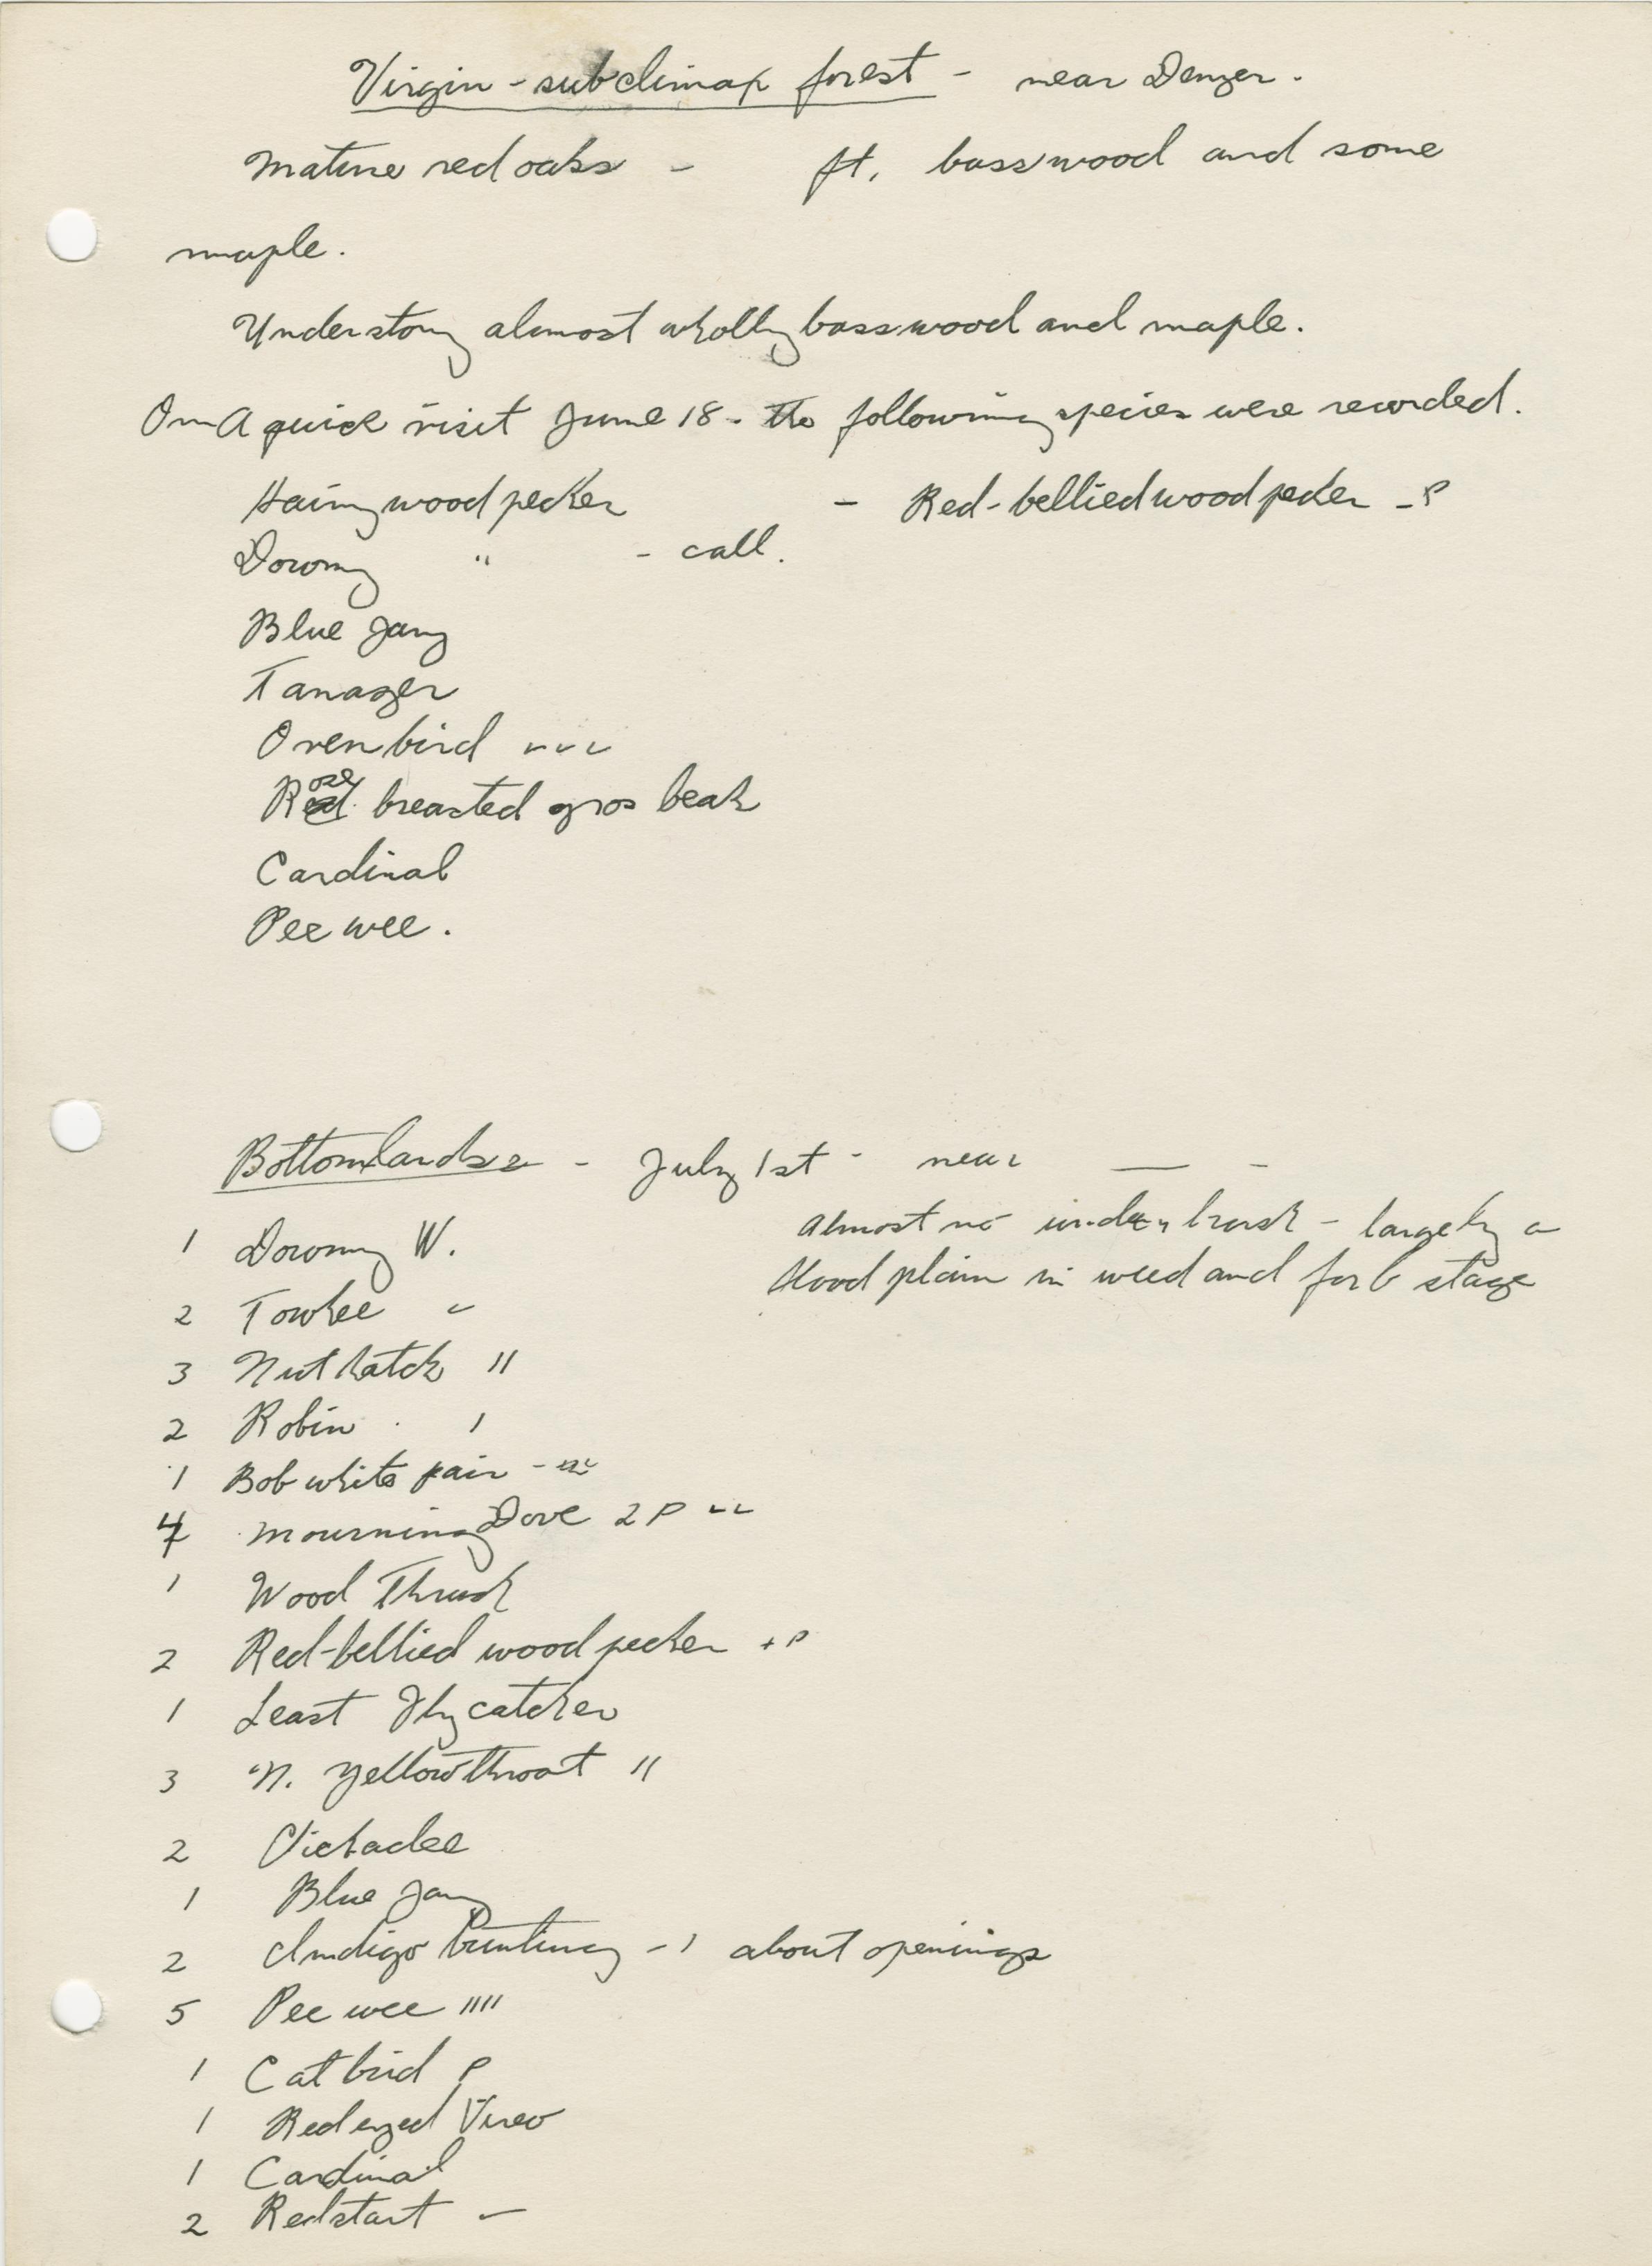 Virgin - subclimax forest - near Denzer.
Mature red oaks - ft. basswood and some
maple.
Understory almost wholly basswood and maple.
On A quick visit June 18 - the following species were recorded.
Hairy woodpecker - Red-bellied woodpecker - P
Downy " - call.
Blue Jay
Tanager
Ovenbird
Rose breasted grosbeak
Cardinal
Pee wee.
Bottomlands - July 1st - near — -
Almost no underbrush - largely a
flood plain in weed and forb stage
1 Downy W.
2 Towhee
3 Nuthatch 11
2 Robin 1
1 Bob white pair -
4 Mourning Dove 2 P
1 Wood Thrush
2 Red-bellied woodpecker + P
1 Least Flycatcher
3 N. Yellowthroat 11
2 Chickadee
1 Blue Jay
2 Indigo Bunting - 1 about openings
5 Pee wee 1111
1 Catbird P
1 Redeyed Vireo
1 Cardinal
2 Redstart -